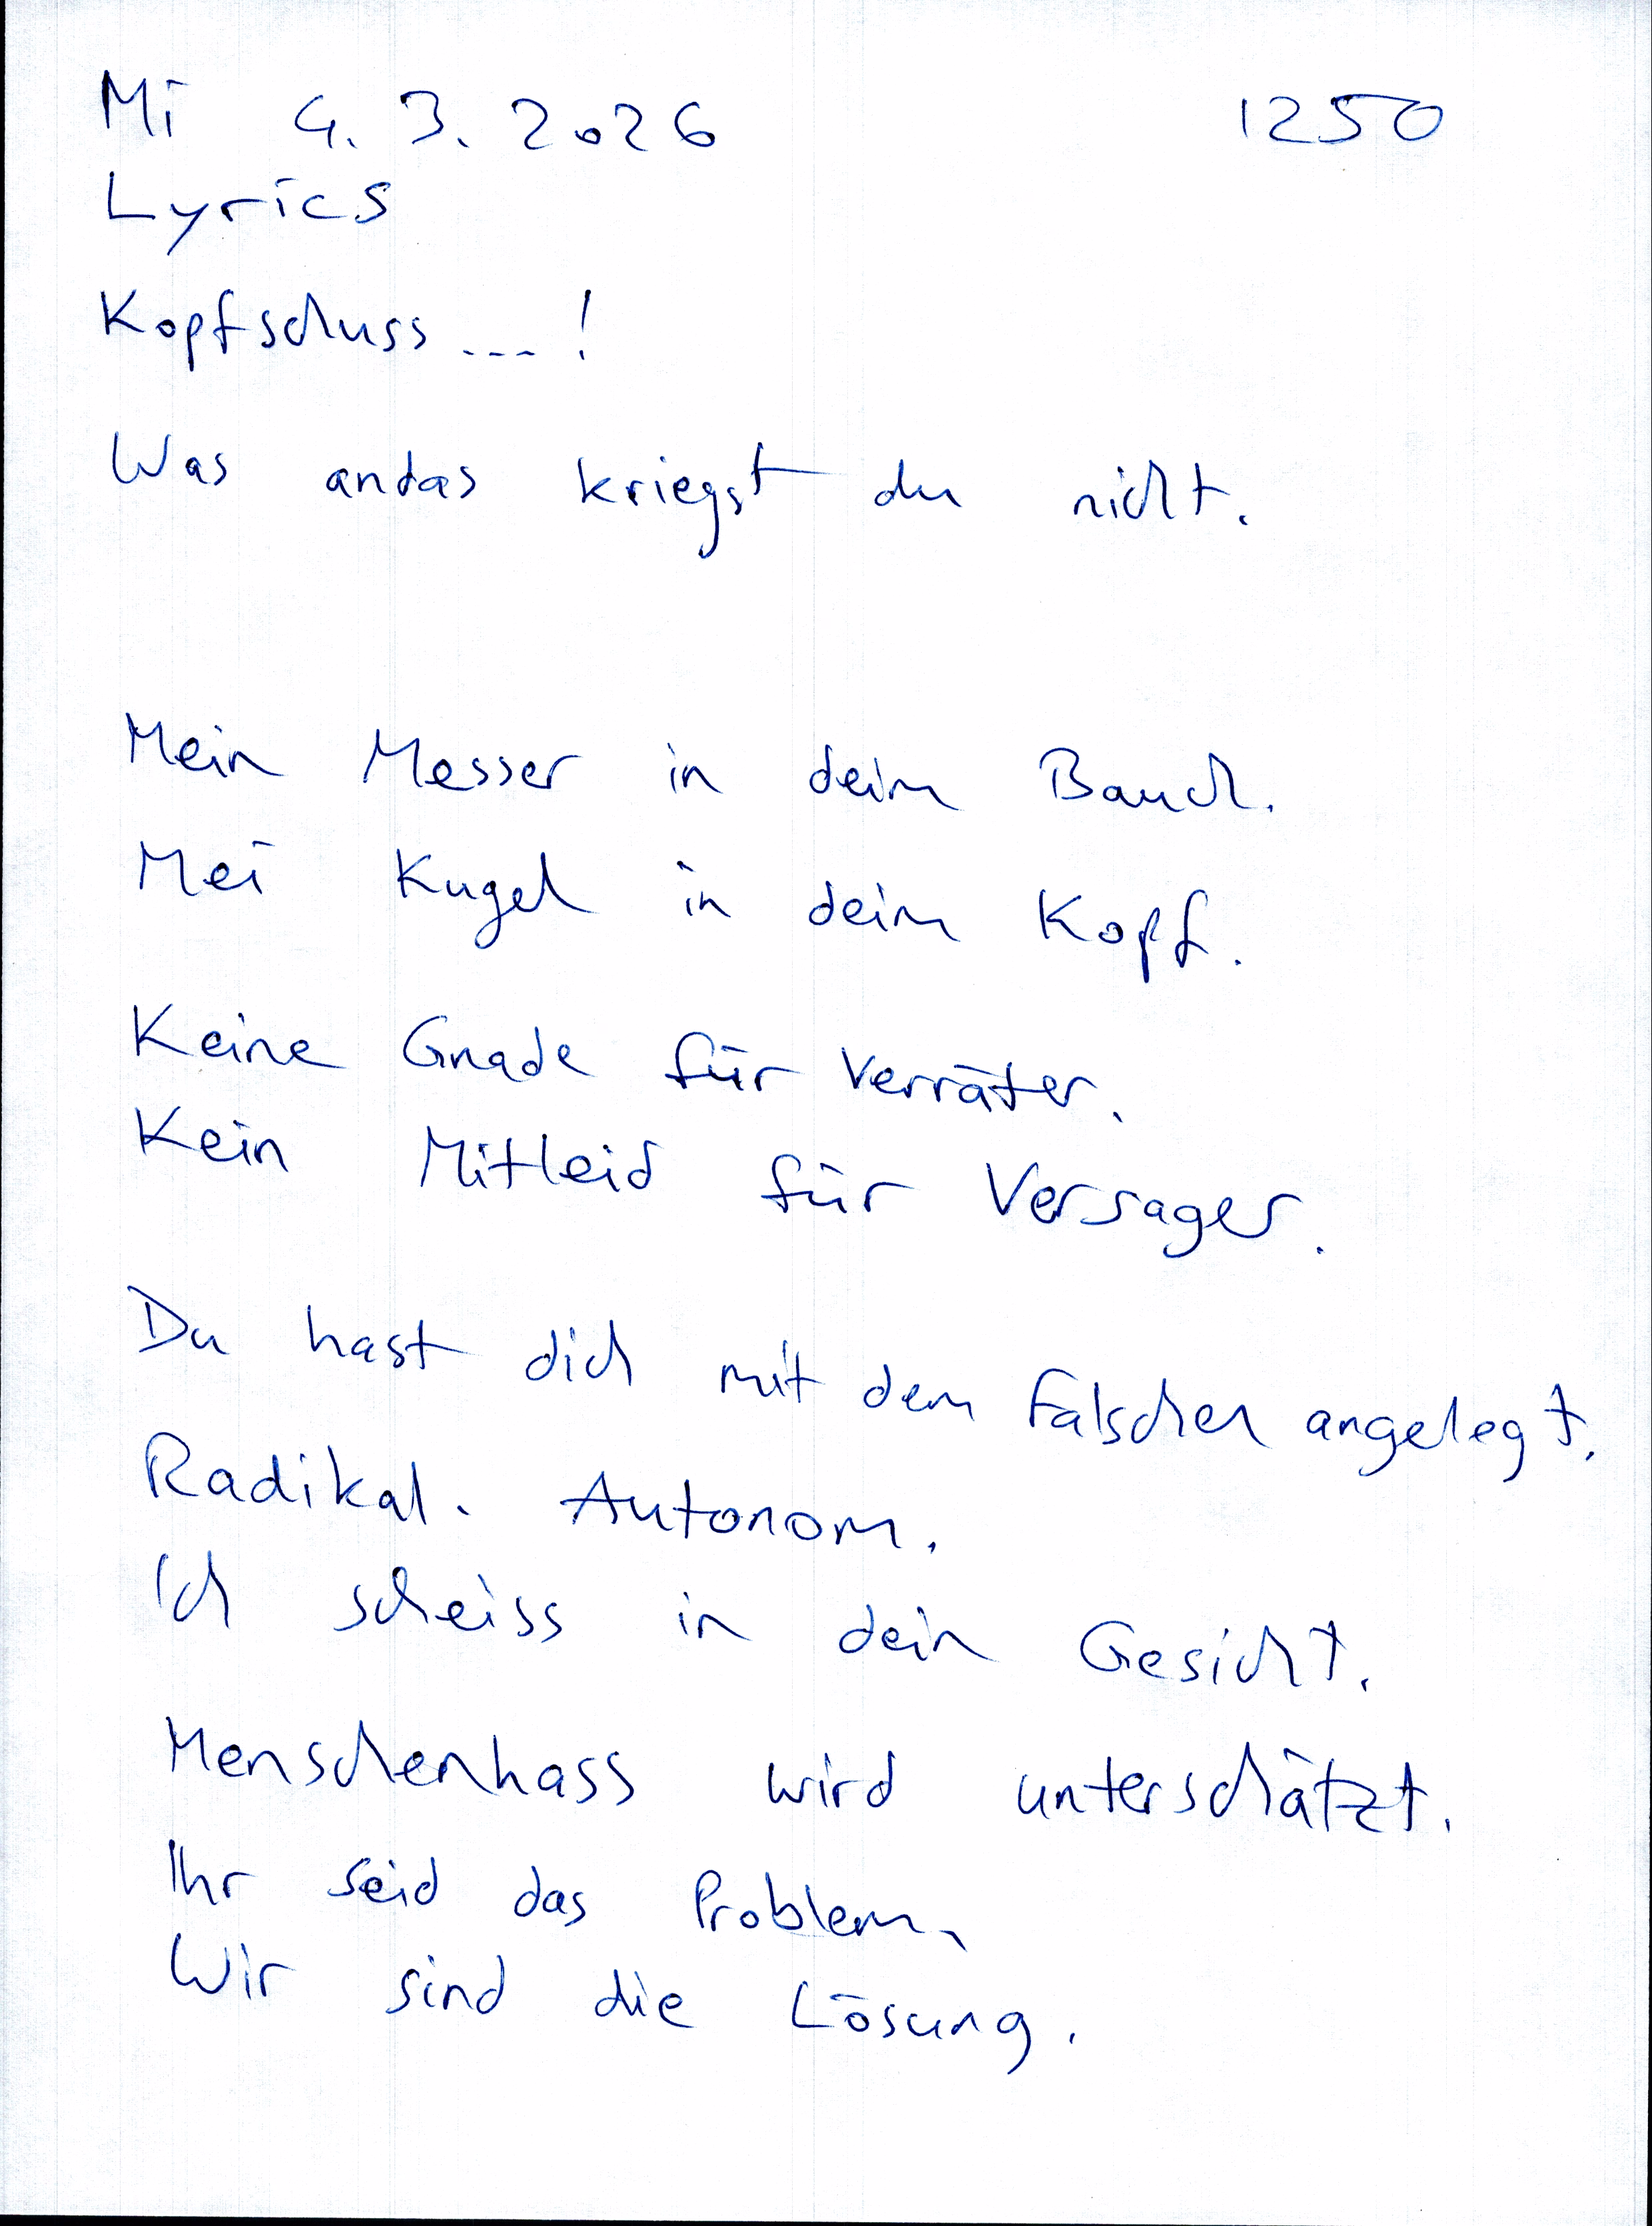 Mi 4. 3. 2026 1250
Lyrics
Kopfschuss...!
Was andas kriegst du nicht.
Mein Messer in deim Bauch.
Mei Kugel in deim Kopf.
Keine Gnade für Verräter.
Kein Mitleid für Versager.
Du hast dich mit dem Falschen angelegt.
Radikal. Autonom.
Ich scheiss in dein Gesicht.
Menschenhass wird unterschätzt.
Ihr seid das Problem,
Wir sind die Lösung.